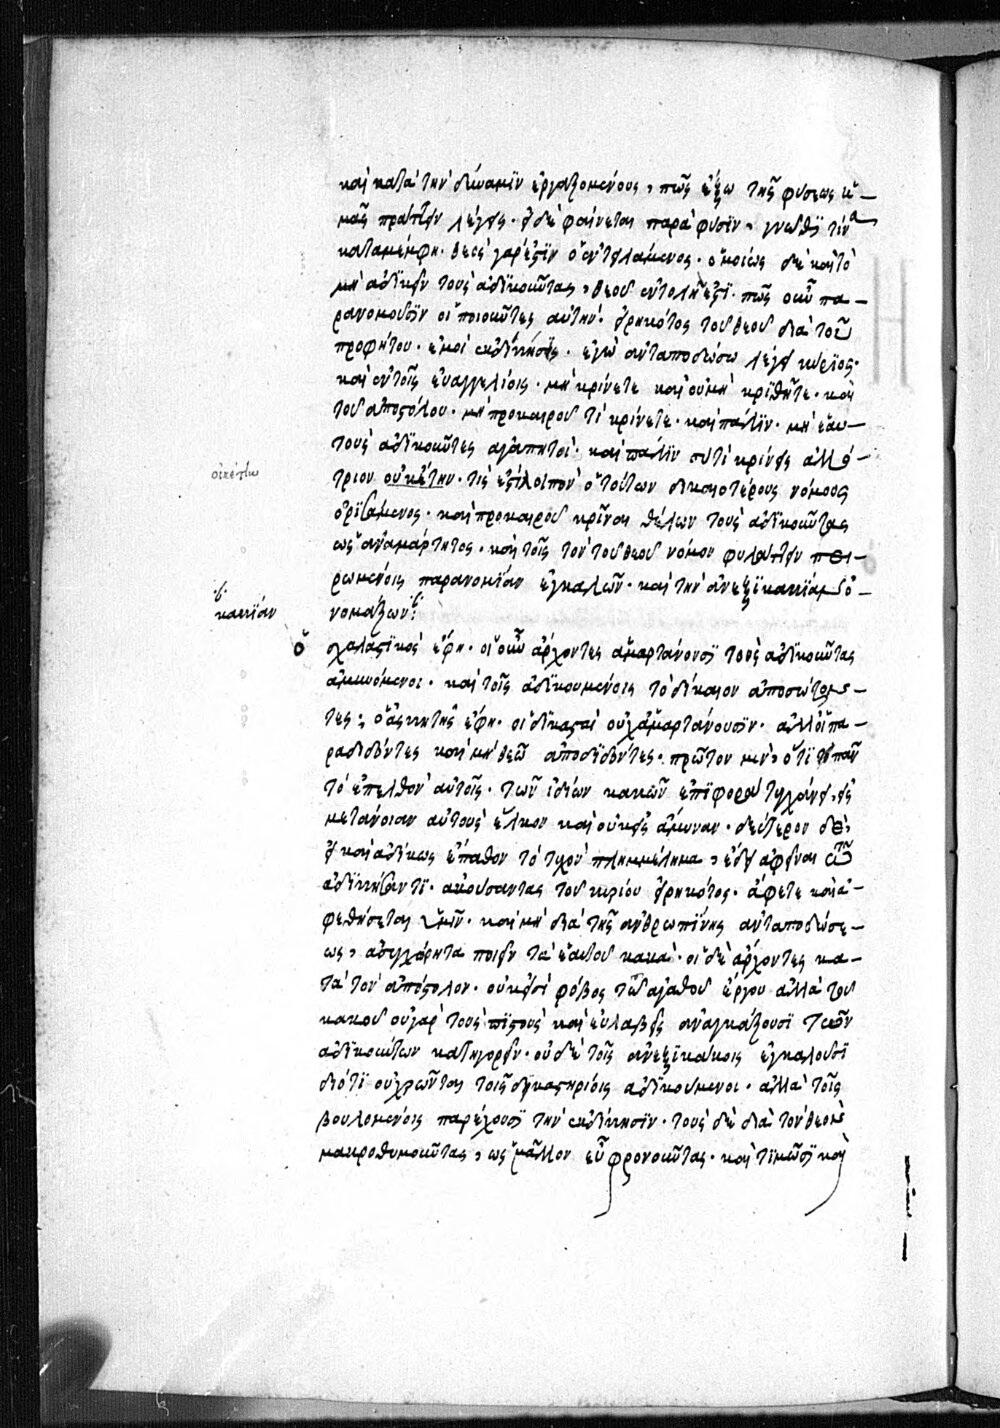 καὶ κατὰ τὴν δύναμιν ἐργαζομένους, πῶς ἔξω τῆς φύσεως ἡ-
μᾶς πράττειν λέγεις. εἰ δὲ φαίνεται παρὰ φύσιν, γνῶθι τίνα
καταμέμφῃ. θεὸς γάρ ἐστιν ὁ ἐντειλάμενος. ὁμοίως δὲ καὶ τὸ
μὴ ἀδικεῖν τοὺς ἀδικοῦντας, θεοῦ ἐντολή ἐστι. πῶς οὖν πα-
ρανομοῦσιν οἱ ποιοῦντες αὐτήν. εἰρηκότος τοῦ θεοῦ διὰ τοῦ
προφήτου. ἐμοὶ ἐκδίκησις. ἐγὼ ἀνταποδώσω λέγει κύριος.
καὶ ἐν τοῖς εὐαγγελίοις. μὴ κρίνετε καὶ οὐ μὴ κριθῆτε. καὶ
τοῦ ἀποστόλου. μὴ πρὸ καιροῦ τι κρίνετε. καὶ πάλιν. μὴ ἑαυ-
τοὺς ἀδικοῦντες ἀγαπητοί. καὶ πάλιν σὺ τί κρίνεις ἀλλό-
τριον οὐκέτην. τίς ἐστι λοιπὸν ὁ τούτων δικαιοτέρους νόμους
οἰκέτην
ὁρισάμενος. καὶ πρὸ καιροῦ κρῖναι θέλων τοὺς ἀδικοῦντας
ὡς ἀναμάρτητος. καὶ τοῖς τὸν τοῦ θεοῦ νόμον φυλάττειν πει-
ρωμένοις παρανομίαν ἐγκαλῶν. καὶ τὴν ἀνεξικακίαν ὀ-
νομάζων
κακίαν
ὁ σχολαστικὸς ἔφη. οἱ οὖν ἄρχοντες ἁμαρτάνουσι τοὺς ἀδικοῦντας
ἀμυνόμενοι. καὶ τοῖς ἀδικουμένοις τὸ δίκαιον ἀποσώζον-
τες; ὁ ἀσκητὴς ἔφη. οἱ δικασταὶ οὐχ ἁμαρτάνουσιν. ἀλλ' οἱ πα-
ραδιδόντες καὶ μὴ θεῷ ἀποδιδόντες. πρῶτον μὲν, ὅτι πᾶν
τὸ ἐπελθὸν αὐτοῖς. τῶν ἰδίων κακῶν ἐπιφορὰ τυγχάνει, εἰς
μετάνοιαν αὐτοὺς ἕλκον καὶ οὐκ εἰς ἄμυναν. δεύτερον δὲ,
εἰ καὶ ἀδίκως ἔπαθον τὸ τυχὸν πλημμέλημα, ἔδει ἀφεῖναι τῷ
ἀδικήσαντι. ἀκούσαντας τοῦ κυρίου εἰρηκότος. ἄφετε καὶ ἀ-
φεθήσεται ὑμῖν. καὶ μὴ διὰ τῆς ἀνθρωπίνης ἀνταποδώσε-
ως, ἀσυγχώρητα ποιεῖν τὰ ἑαυτοῦ κακά. οἱ δὲ ἄρχοντες κα-
τὰ τὸν ἀπόστολον. οὐκ εἰσὶ φόβος τοῦ ἀγαθοῦ ἔργου ἀλλὰ τοῦ
κακοῦ οὐ γὰρ τοὺς πιστοὺς καὶ εὐλαβεῖς ἀναγκάζουσι τῶν
ἀδικούντων κατηγορεῖν. οὐδὲ τοῖς ἀνεξικάκοις ἐγκαλοῦσι
διότι οὐ χρῶνται τοῖς δικαστηρίοις ἀδικούμενοι. ἀλλὰ τοῖς
βουλομένοις παρέχουσι τὴν ἐκδίκησιν. τοὺς δὲ διὰ τὸν θεὸν
μακροθυμοῦντας, ὡς μᾶλλον εὖ φρονοῦντας. καὶ τιμῶσι καὶ